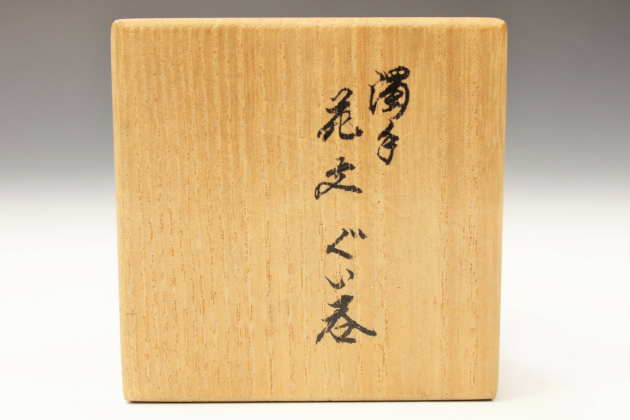 濁手
花文ぐい呑